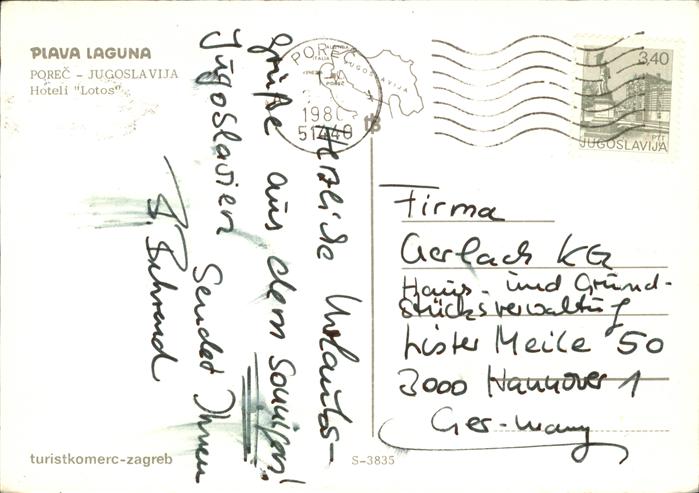 PLAVA LAGUNA
POREČ – JUGOSLAVIJA
Hoteli "Lotos"
POREČ
198
51440
JUGOSLAVIJA
3,40
JUGOSLAVIJA
Herzliche Urlaubs-
grüße aus dem sonnigen!
Jugoslavien sendet Ihnen
Behrend
Firma
Gerlach KG
Haus- und Grund-
stücksverwaltung
Lister Meile 50
3000 Hannover 1
Germany
turistkomerc-zagreb
S-3835